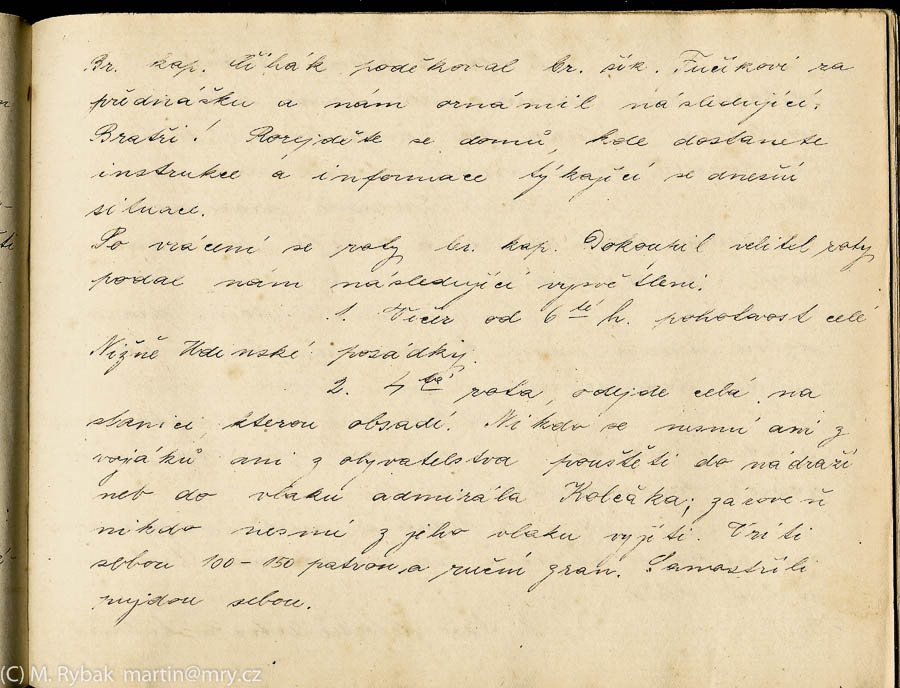 Br. kap. Číhák poděkoval br. šik. Fučíkovi za
přednášku a nám oznámil následující:
Bratři! Rozejděte se domů, kde dostanete
instrukce a informace týkající se dnešní
situace.
Po vrácení se roty br. kap. Dokoupil velitel roty
podal nám následující vysvětlení.
1. Večer od 6 té h. pohotovost celé
Nižně Udinské posádky.
2. 4 tá rota, odejde celá na
stanici, kterou obsadí. Nikdo se nesmí ani z
vojáků ani z obyvatelstva pouštěti do nádraží
neb do vlaku admirála Kolčaka; zároveň
nikdo nesmí z jeho vlaku vyjíti. Vzíti
sebou 100-150 patron a ruční gran. Samostříli
nujdou sebou.
(C) M. Rybak martin@mry.cz